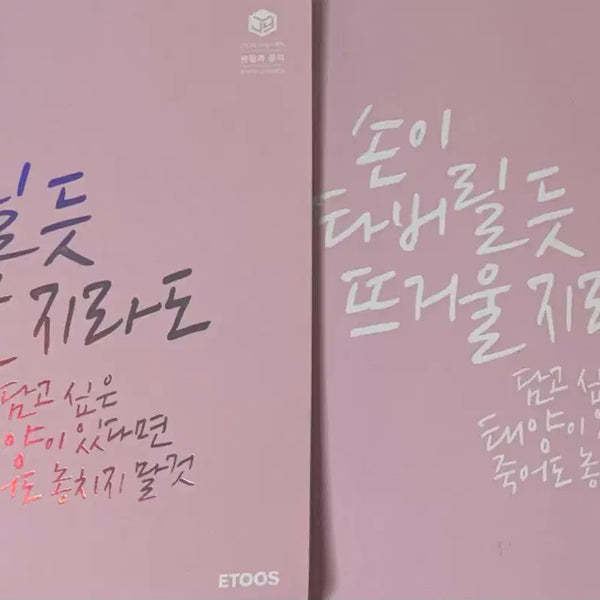 생활과 윤리
릴듯
지라도
담고 싶은
양이 있다면
어도 놓치지 말것
ETOOS
손이
타버릴듯
뜨거울 지라
담고 싶
태양이 있
죽어도 놓